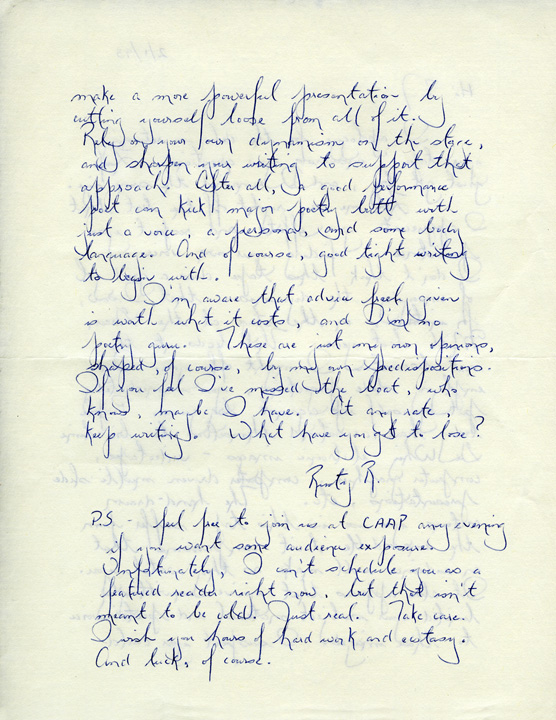 make a more powerful presentation by
cutting yourself loose from all of it.
Rely on your own dynamism on the stage,
and sharpen your writing to support that
approach. After all, a good performance
poet can kick major poetry butt with
just a voice, a persona, and some body
language. And of course, good tight writing
to begin with.
I'm aware that advice freely given
is worth what it costs, and I'm no
poetry guru. These are just my own opinions,
shaped, of course, by my own predispositions.
If you feel I've missed the boat, who
knows, maybe I have. At any rate,
keep writing. What have you got to lose?
Rusty R.
P.S. feel free to join us at CAAP any evening
if you want some audience exposure.
Unfortunately, I can't schedule you as a
featured reader right now, but that isn't
meant to be cold. Just real. Take care.
I wish you hours of hard work and ecstasy.
And luck, of course.